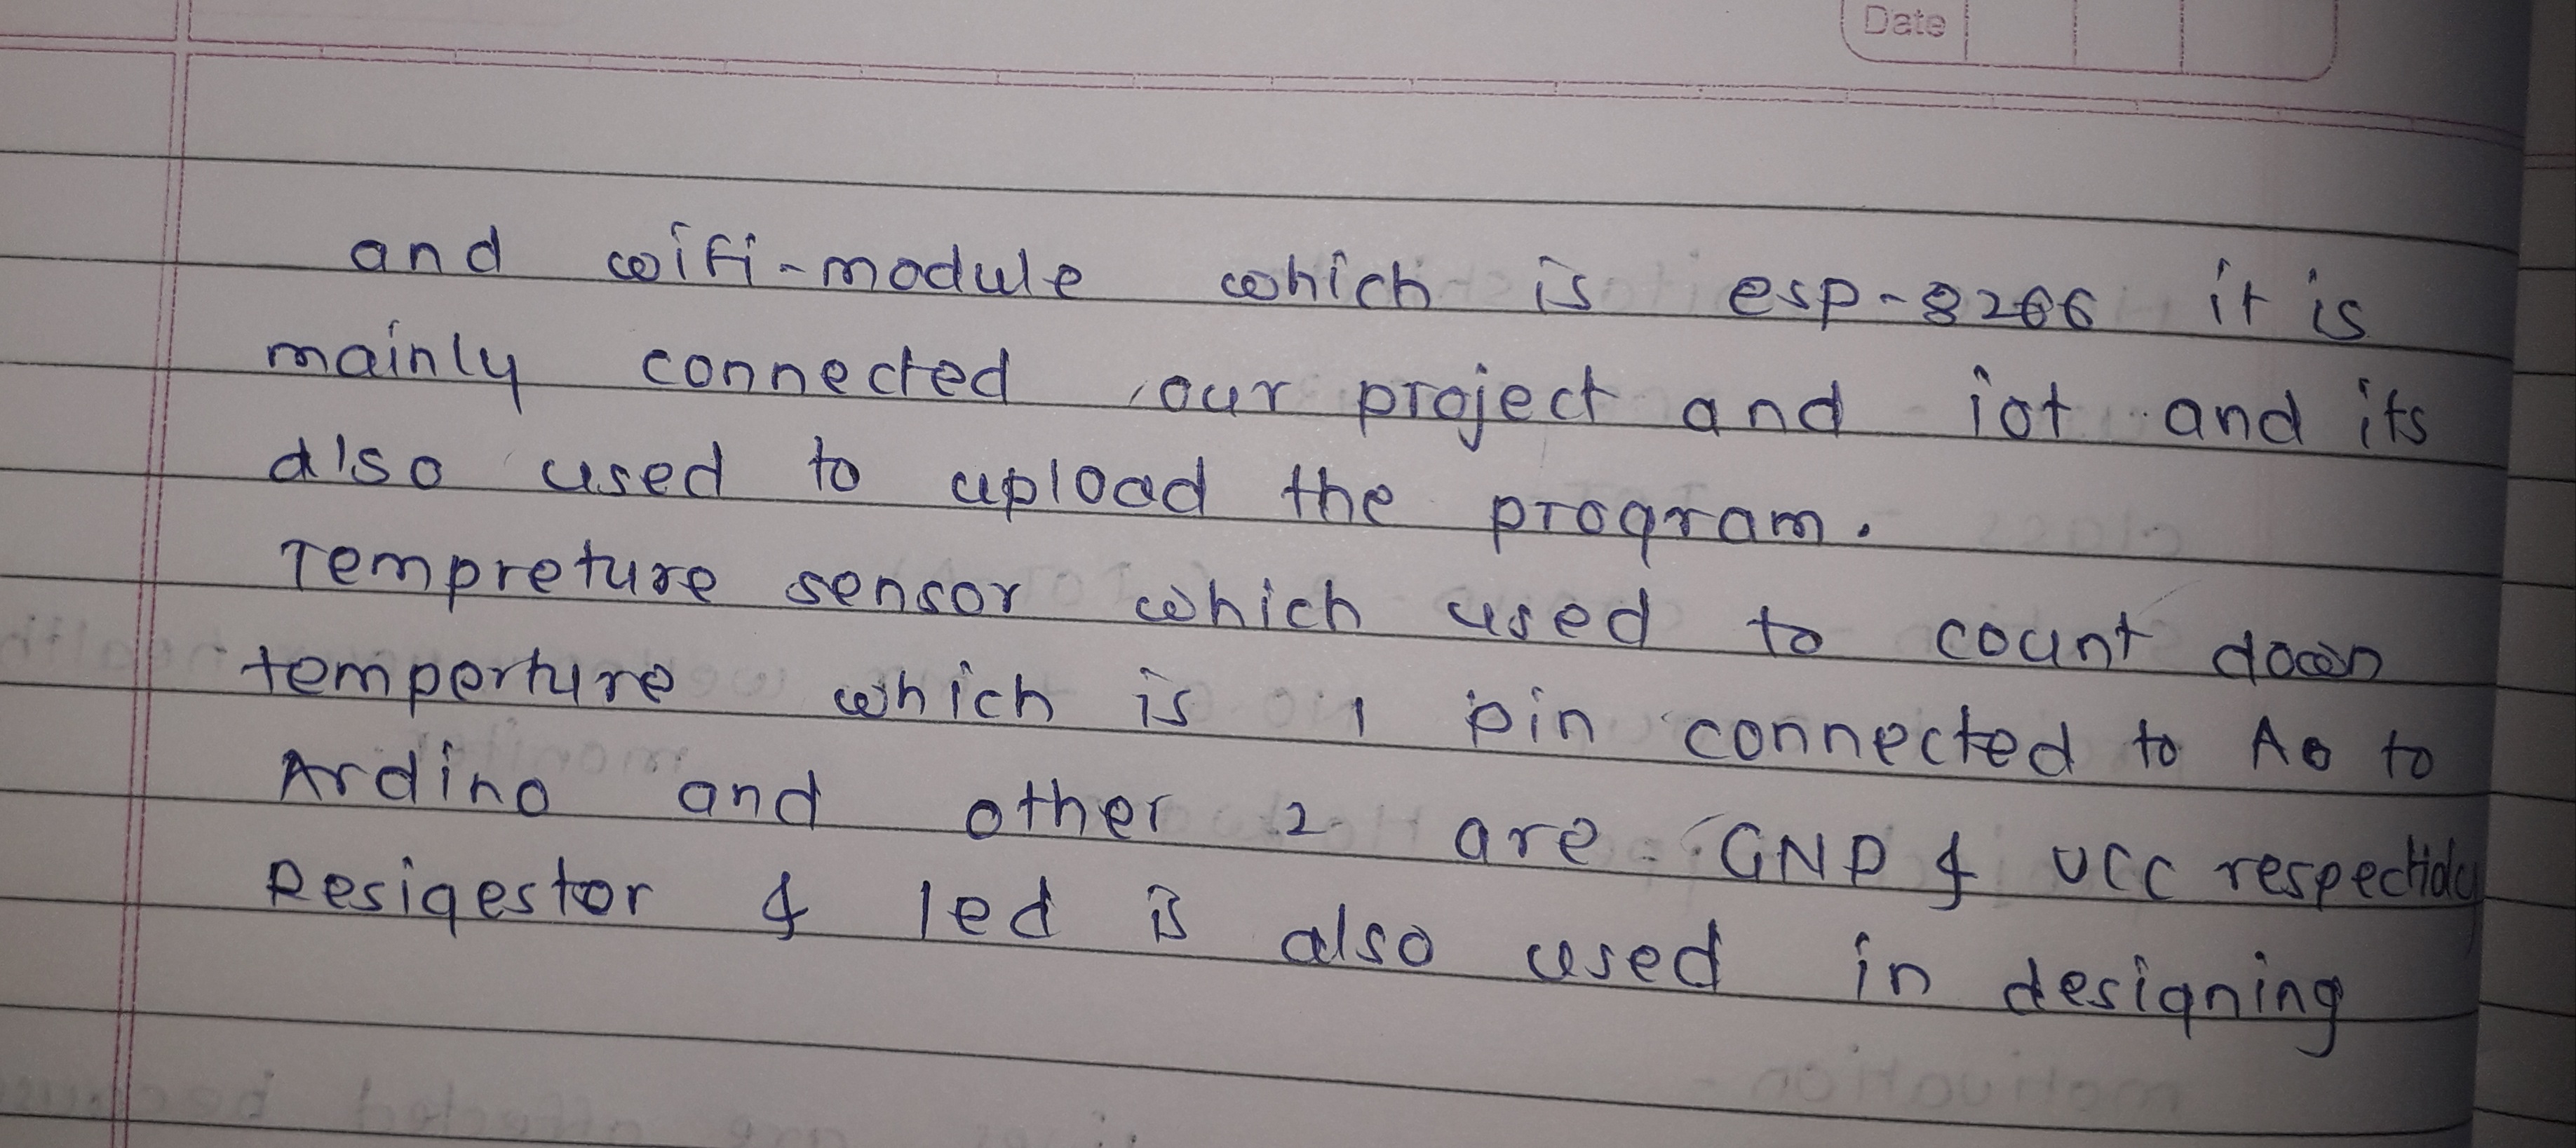 Date
and wifi-module which is esp-8266 it is
mainly connected our project and iot and its
also used to upload the program.
Tempreture sensor which used to count down
temperture which is 1 pin connected to A0 to
Ardino and other 2 are GND & VCC respectidy
Resigestor & led is also used in designing
motivation -